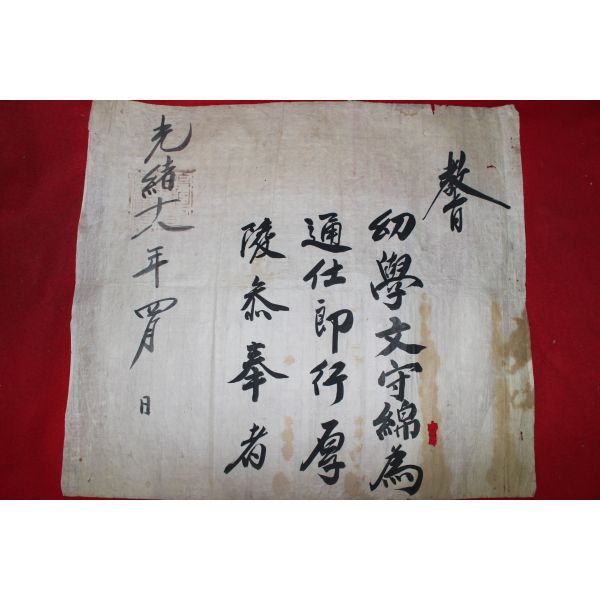 敎旨
幼學文守綿為
通仕郎行厚
陵叅奉者
光緖十八年四月 日